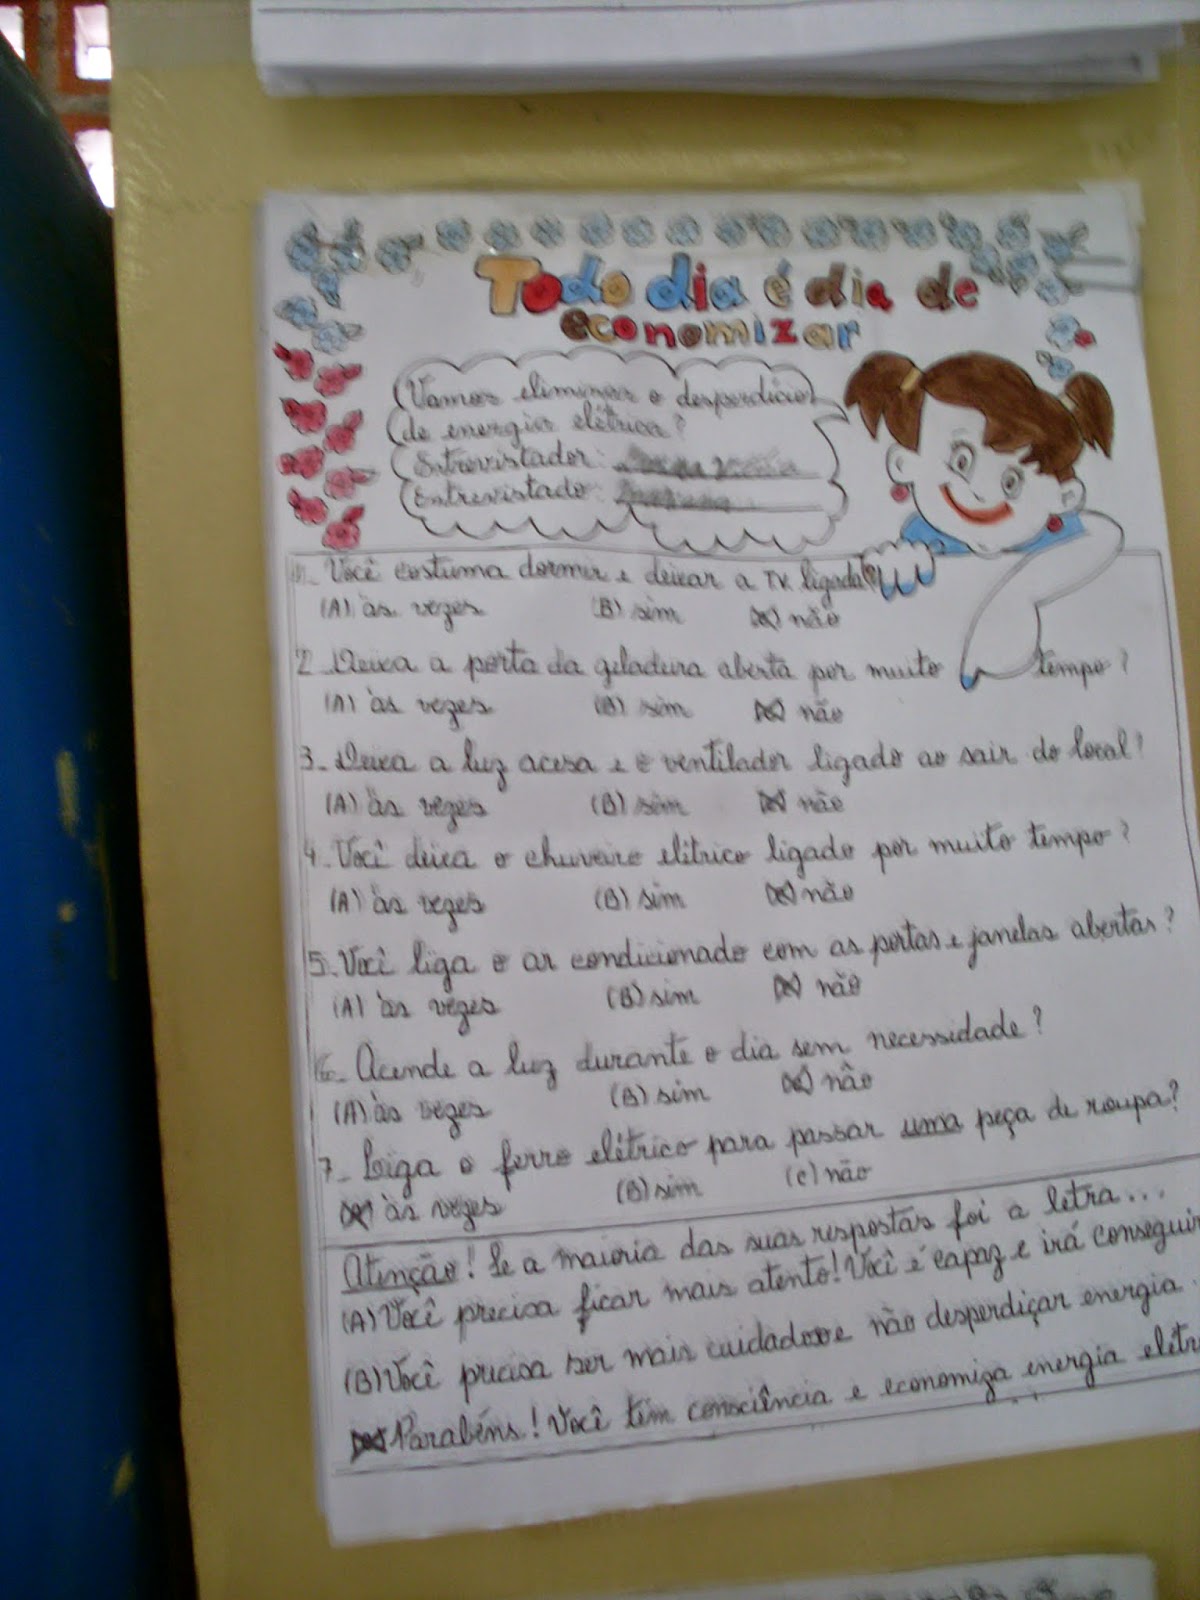 Todo dia é dia de
economizar
Vamos eliminar o desperdício
de energia elétrica?
Entrevistador:
Entrevistado:
1- Você costuma dormir e deixar a TV. ligada?
(A) às vezes (B) sim (X) não
2- Deixa a porta da geladura aberta por muito tempo?
(A) às vezes (B) sim (X) não
3- Deixa a luz acesa e o ventilador ligado ao sair do local?
(A) às vezes (B) sim (X) não
4- Você deixa o chuveiro elétrico ligado por muito tempo?
(A) às vezes (B) sim (X) não
5- Você liga o ar condicionado com as portas e janelas abertas?
(A) às vezes (B) sim (X) não
6- Acende a luz durante o dia sem necessidade?
(A) às vezes (B) sim (X) não
7- Liga o ferro elétrico para passar uma peça de roupa?
(X) às vezes (B) sim (c) não
Atenção! Se a maioria das suas respostas foi a letra...
(A) Você precisa ficar mais atento! Você é capaz e irá conseguir
(B) Você precisa ser mais cuidadoso e não desperdiçar energia.
(X) Parabéns! Você tem consciência e economiza energia elétr